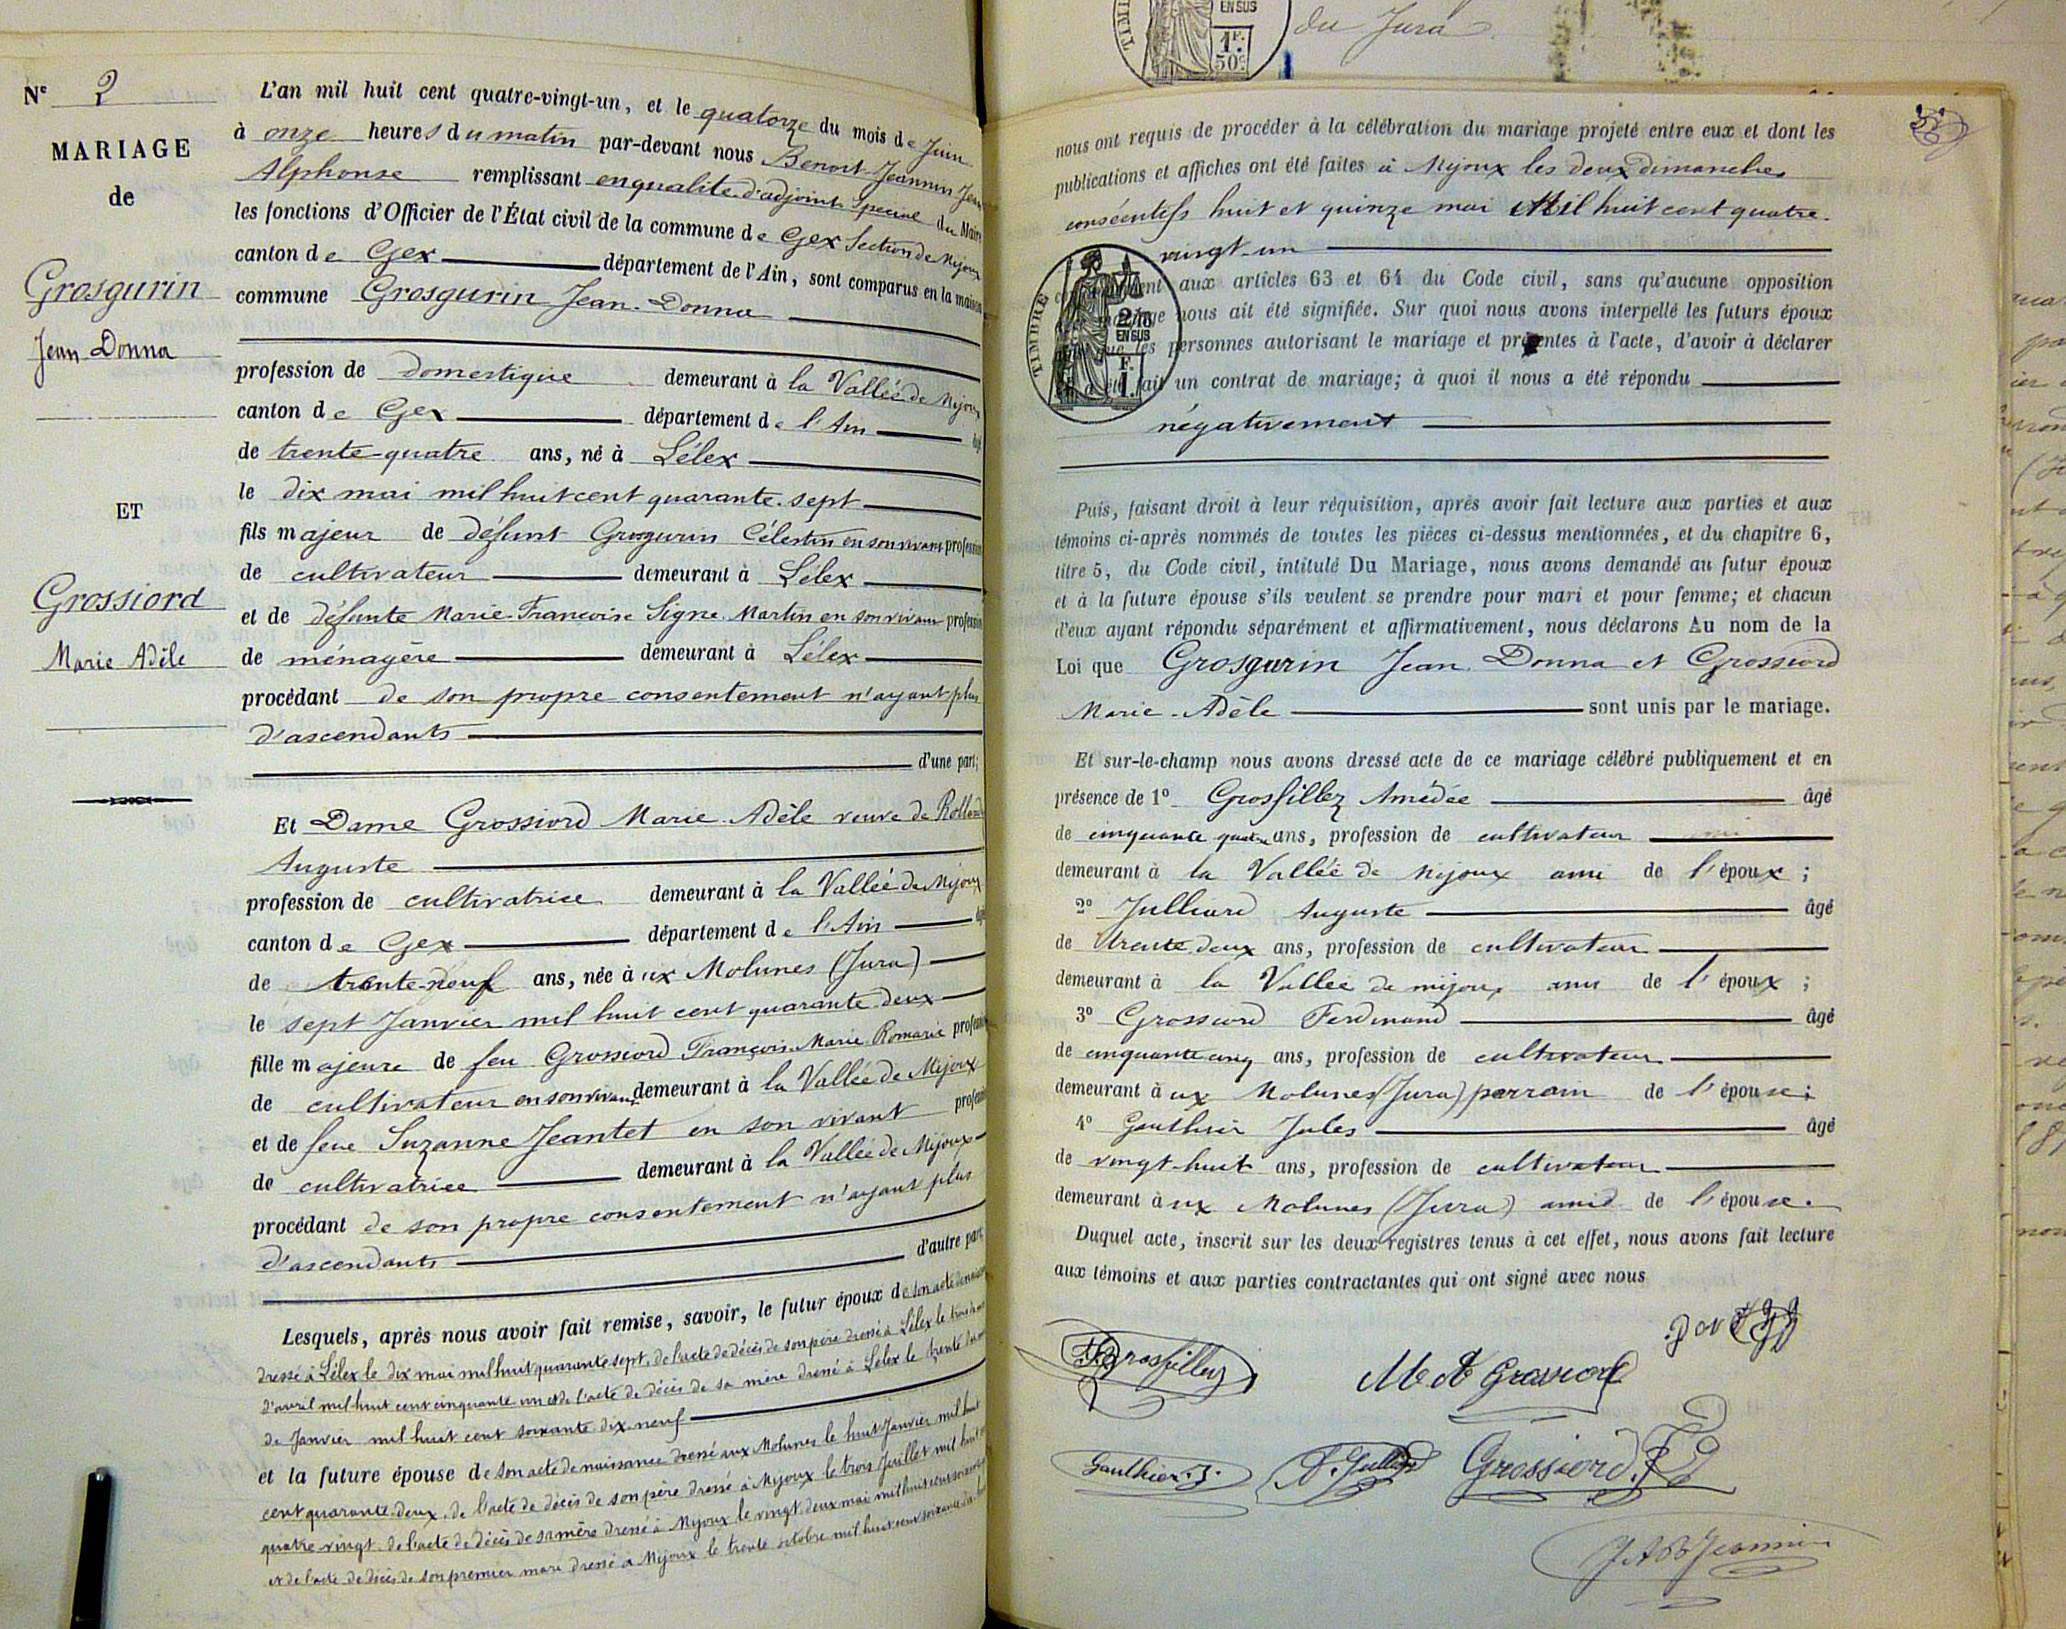 Nº 2
MARIAGE
de
Grosgurin
Jean Donna
ET
Grossiord
Marie Adèle
L'an mil huit cent quatre-vingt-un, et le quatorze du mois de Juin
à onze heures du matin par-devant nous Benoit-Jeannin Jean
Alphonse remplissant en qualité d'adjoint spécial du Maire
les fonctions d'Officier de l'État civil de la commune de Gex Section de Mijoux
canton de Gex département de l'Ain, sont comparus en la maison
commune Grosgurin Jean-Donna
profession de domestique demeurant à la Vallée de Mijoux
canton de Gex département de l'Ain âgé
de trente-quatre ans, né à Lélex
le dix mai mil huit cent quarante-sept
fils majeur de défunt Grosgurin Célestin en son vivant profession
de cultivateur demeurant à Lélex
et de défunte Marie-Françoise Signe-Martin en son vivant profession
de ménagère demeurant à Lélex
procédant de son propre consentement n'ayant plus
d'ascendants
d'une part;
Et Dame Grossiord Marie-Adèle veuve de
Auguste
profession de cultivatrice demeurant à la Vallée de Mijoux
canton de Gex département de l'Ain âgé
de trente-neuf ans, née à ux Molunes (Jura)
le sept Janvier mil huit cent quarante-deux
fille majeure de feu Grossiord François-Marie Romarie profession
de cultivateur en son vivant demeurant à la Vallée de Mijoux
et de feue Suzanne Jeantet en son vivant profession
de cultivatrice demeurant à la Vallée de Mijoux
procédant de son propre consentement n'ayant plus
d'ascendants
d'autre part
Lesquels, après nous avoir fait remise, savoir, le futur époux de son acte de naissance
dressé à Lélex le dix mai mil huit quarante sept, de l'acte de décès de son père dressé à Lélex le
d'avril mil huit cent cinquante un et de l'acte de décès de sa mère dressé à Lélex le trente
de Janvier mil huit cent soixante dix-neuf
et la future épouse de son acte de naissance dressé aux Molunes le huit Janvier mil huit
cent quarante-deux, de l'acte de décès de son père dressé à Mijoux le trois Juillet mil huit
quatre-vingt, de l'acte de décès de sa mère dressé à Mijoux le vingt-deux mai mil huit cent
et de l'acte de décès de son premier mari dressé à Mijoux le trente octobre mil huit cent soixante-dix
du Jura
TIMBRE
EN SUS
1F.
50c
nous ont requis de procéder à la célébration du mariage projeté entre eux et dont les
publications et affiches ont été faites à Mijoux les deux dimanches
consécutifs huit et quinze mai Mil huit cent quatre-
vingt-un
TIMBRE
2/10
EN SUS
F.
1.
aux articles 63 et 64 du Code civil, sans qu'aucune opposition
nous ait été signifiée. Sur quoi nous avons interpellé les futurs époux
que les personnes autorisant le mariage et présentes à l'acte, d'avoir à déclarer
fait un contrat de mariage; à quoi il nous a été répondu
négativement
Puis, faisant droit à leur réquisition, après avoir fait lecture aux parties et aux
témoins ci-après nommés de toutes les pièces ci-dessus mentionnées, et du chapitre 6,
titre 5, du Code civil, intitulé Du Mariage, nous avons demandé au futur époux
et à la future épouse s'ils veulent se prendre pour mari et pour femme; et chacun
d'eux ayant répondu séparément et affirmativement, nous déclarons Au nom de la
Loi que Grosgurin Jean-Donna et Grossiord
Marie-Adèle sont unis par le mariage.
Et sur-le-champ nous avons dressé acte de ce mariage célébré publiquement et en
présence de 1º Grosfillez Amédée âgé
de cinquante quatre ans, profession de cultivateur
demeurant à la Vallée de Mijoux ami de l'époux ;
2º Julliard Auguste âgé
de trente-deux ans, profession de cultivateur
demeurant à la Vallée de mijoux ami de l'époux ;
3º Grossiord Ferdinand âgé
de cinquante cinq ans, profession de cultivateur
demeurant à ux Molunes (Jura) parrain de l'épouse;
4º Gauthier Jules âgé
de vingt-huit ans, profession de cultivateur
demeurant à ux Molunes (Jura) ami de l'épouse.
Duquel acte, inscrit sur les deux registres tenus à cet effet, nous avons fait lecture
aux témoins et aux parties contractantes qui ont signé avec nous
Grosfillez
M A Grossiord
Gauthier. J.
Grossiord. F
J A B Jeannin